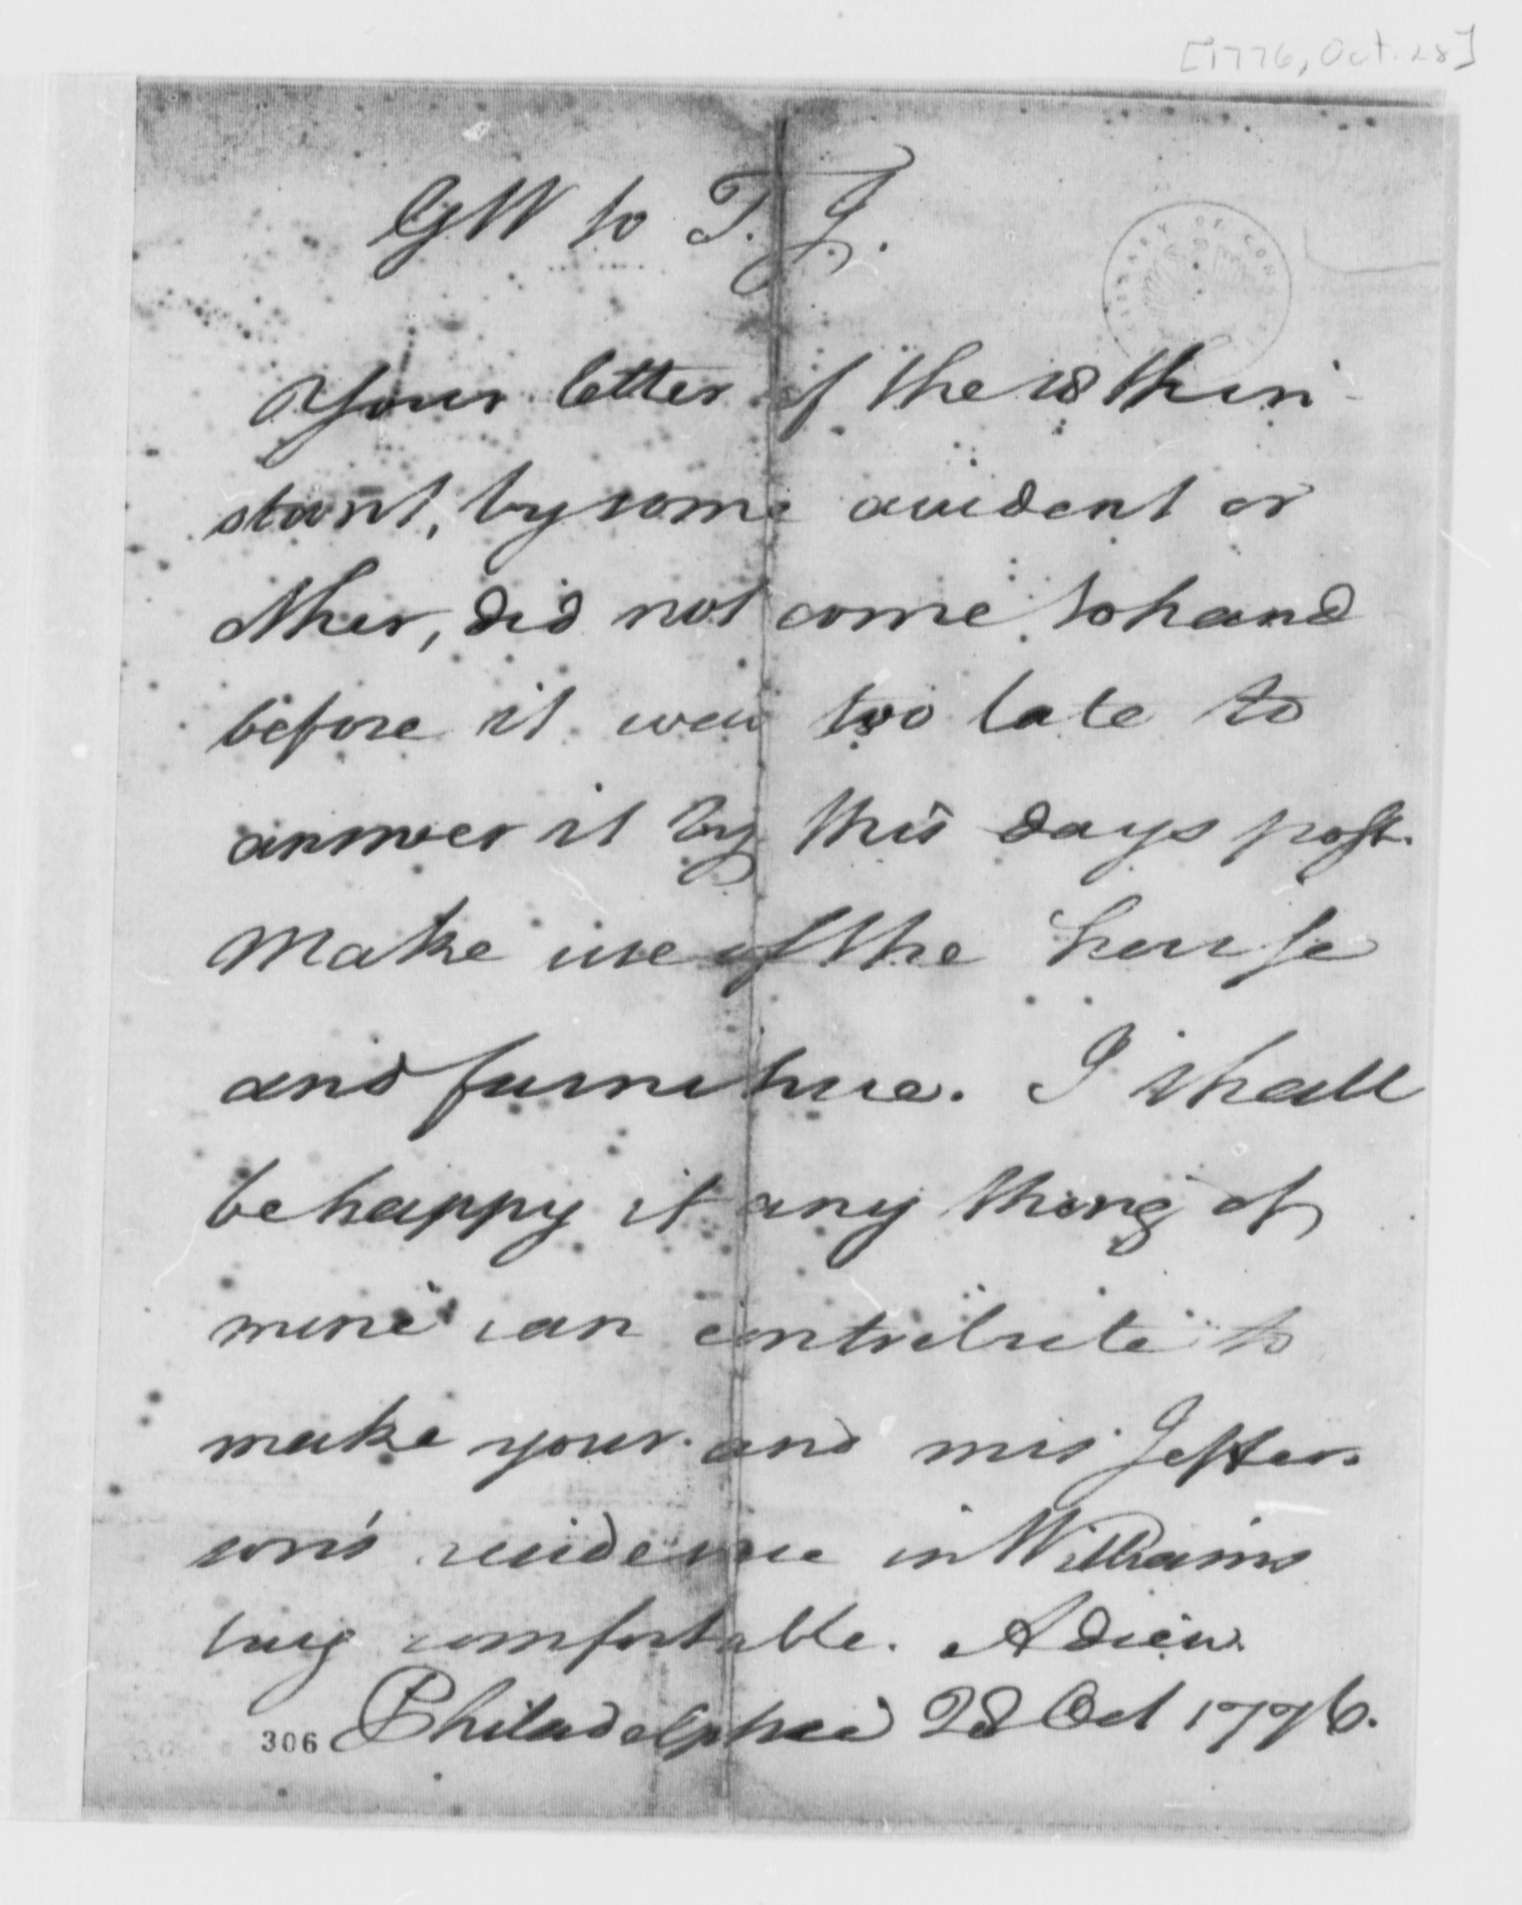 [1776, Oct. 28]
GW to T. J.
LIBRARY OF CONG
Your letter of the 18 th in
stant, by some accident or
other, did not come to hand
before it was too late to
answer it by this days post.
Make use of the house
and furniture. I shall
be happy if any thing of
mine can contribute to
make your and mrs Jeffer
son's residence in Williams
burg comfortable. Adieu.
306 Philadelphia 28 Oct 1776.